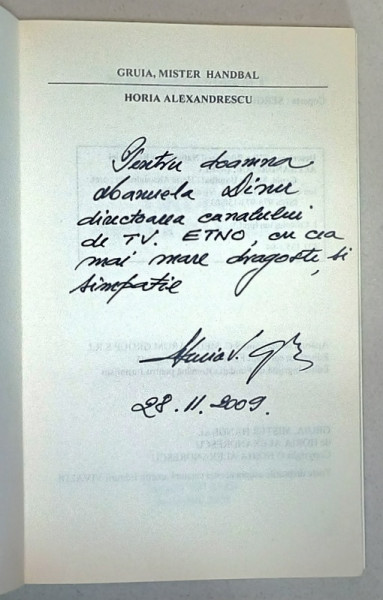 GRUIA, MISTER HANDBAL
HORIA ALEXANDRESCU
Pentru doamna
Manuela Dinu
directoarea canalului
de TV. ETNO, cu cea
mai mare dragoste și
simpatie
28.11.2009.